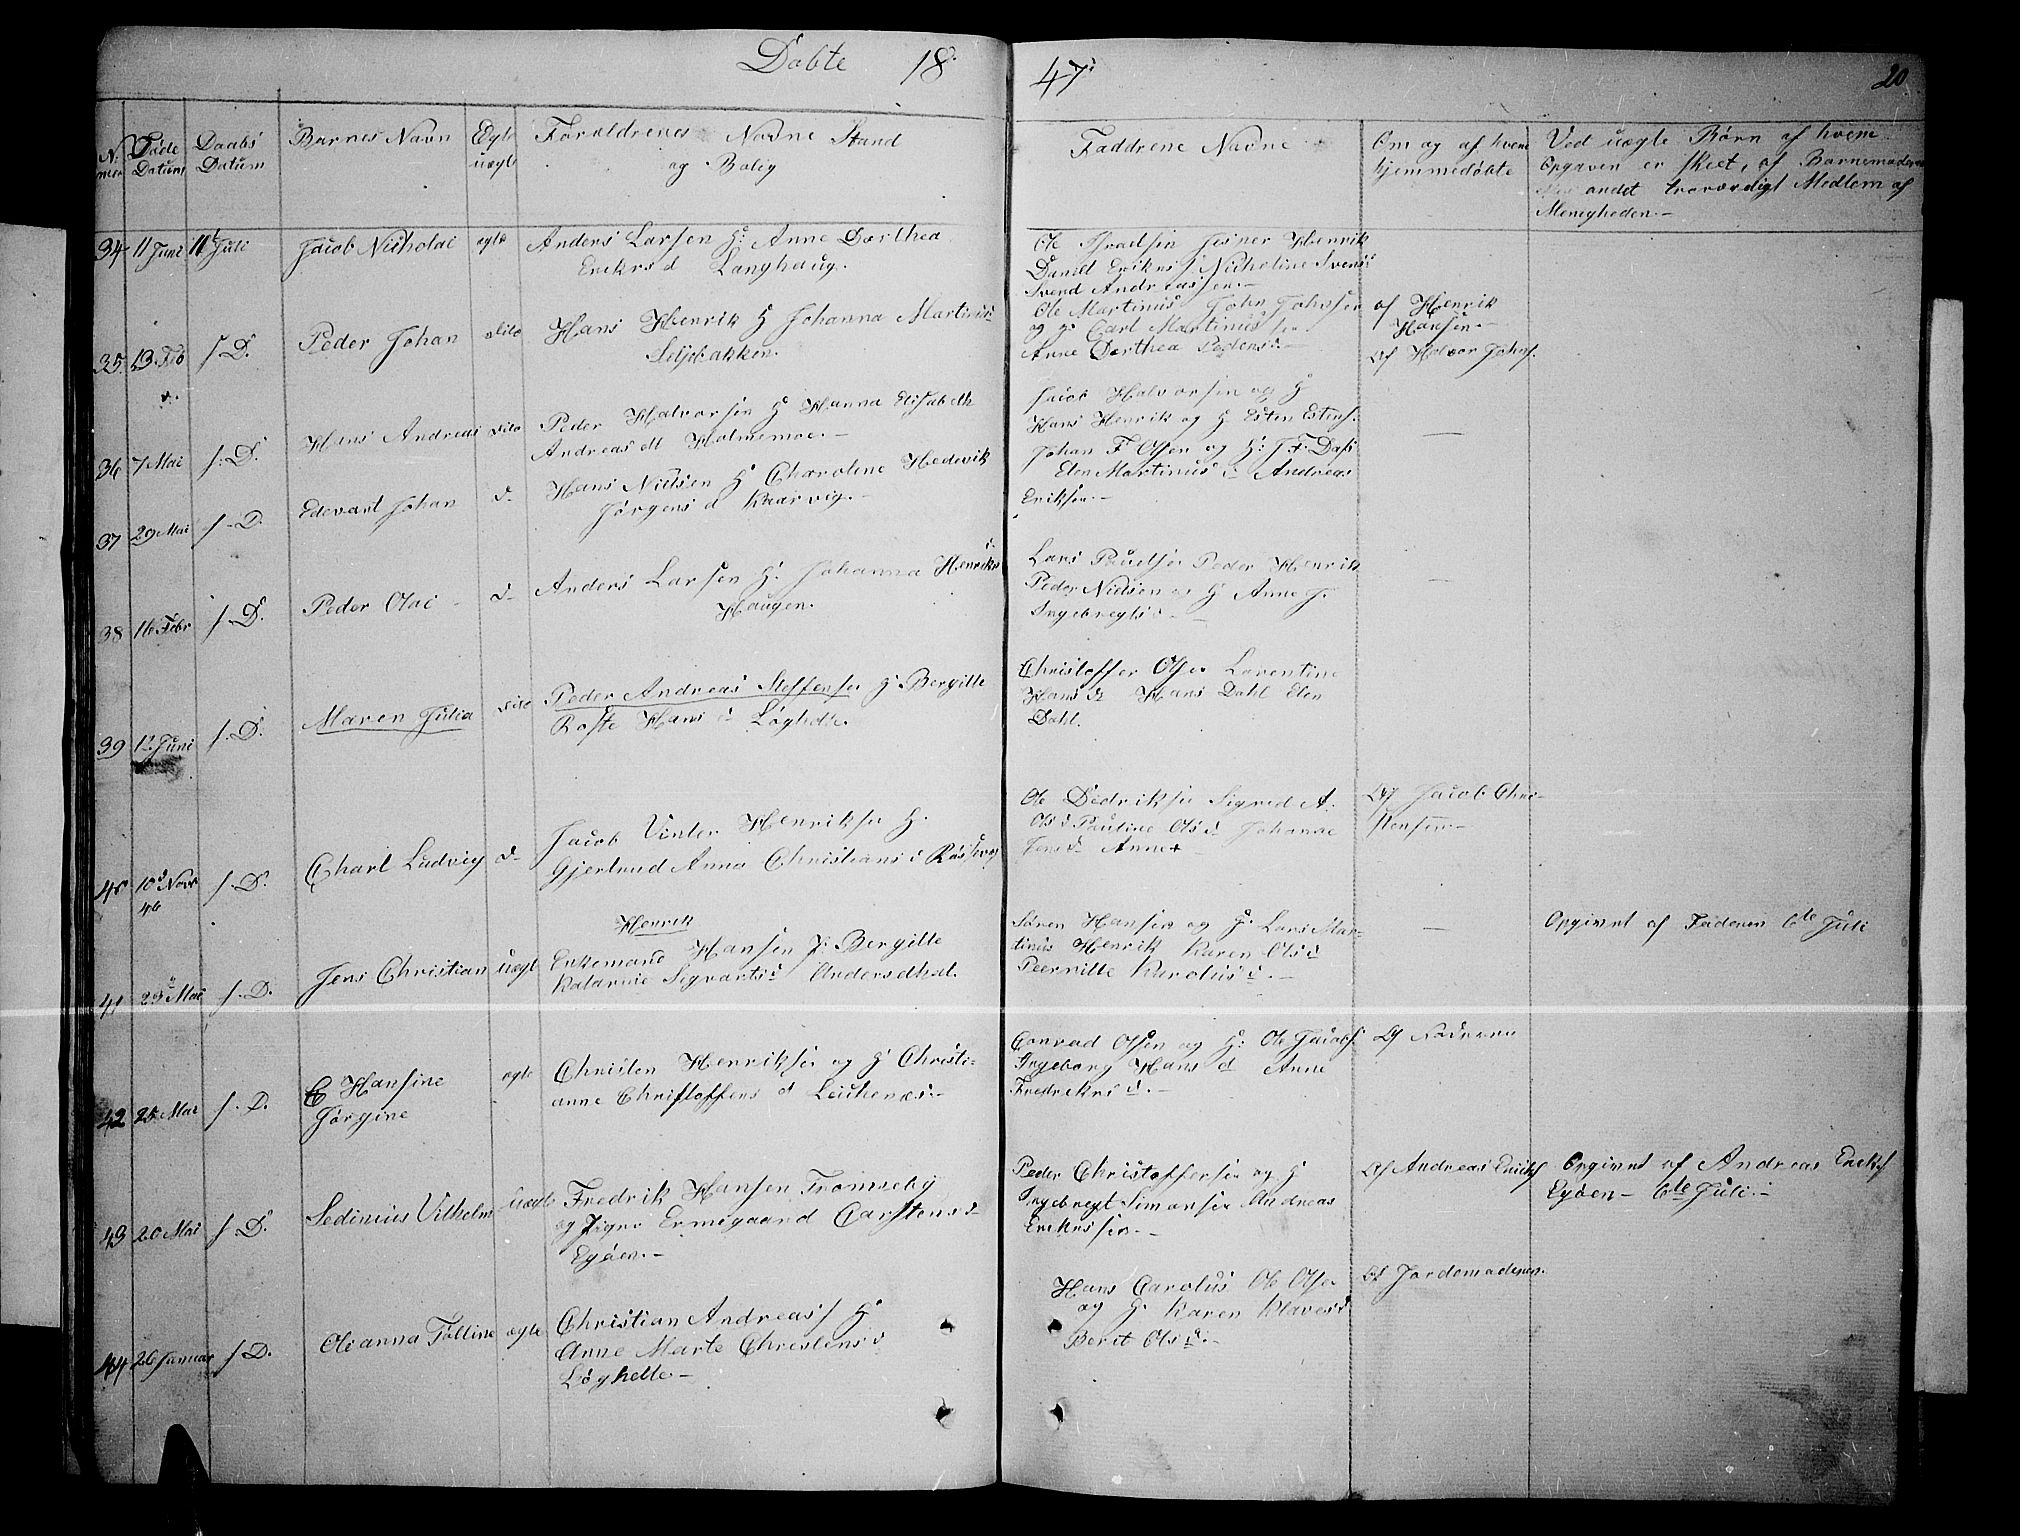 Døbte 18
47
20
N:
Føde Datum
Daabs Datum
Barnes Navn
Egte uægt
Foreldrenes Navne Stand
og Bolig
Faddrene Navne
Om og af hvem
hjemmedøbte
Ved uægte Børn af hvem
Opgaven er skeet, af Barnemoderen
andet troværdigt Medlem af
Menigheden.-
34 11 Juni 11 Juli Jacob Nicholai egte Anders Larsen H: Anne Dorthea
Eriks d Langhaug.
Ole Jesper Henrik
Daniel Eriks Nicholine Svens
Svend Andreassen.-
35. 13. Feb s. D. Peder Johan dito Hans Henrik H Johanna Martinus
Seljebakken.
Ole Martinus John Johnsen
og H. Carl Martinus
Anne Dorthea Peders d.-
af Henrik
Hansen.-
af Halvor Johns.
36 7 Mai s. D. Hans Andreas dito Peder Halvorsen H Hanna Elisabeth
Andreas dt Holmemoe.-
Jacob Halvorsen og H
Hans Henrik og H Esten Estens.
-
37 29 Mai s. D. Edevart Johan d- Hans Nielsen H Charoline Hedevik
Jørgens d Kaarvig.-
Johan F Olsen og H: J F. Dass
Elen Martinus d Andreas
Eriksen.-
38 16 Febr s. D. Peder Olai d- Anders Larsen H. Johanna Henriks d
Haugen.
Lars Poulsen Peder Henrik
Peder Nielsen og H Anne J.
Ingebregts d.-
-
39 12 Juni s. D. Maren Julia dito Peder Andreas Steffensen H Bergitte
Hans d Løghelle.
Christoffer Olsen Larentine
Hans d Hans Dahl Elen
Dahl.
40 10 Novr
46
s. D. Charl Ludvig d- Jacob Vinter Henriksen H.
Gjertrud Anna Christians d
Ole Didriksen Sigrid A.
Ols d Pauline Ols d Johanne
Jens d Anne
Af Jacob Chri-
stensen.-
41 29 Mai s. D. Jens Christian uægt
Henrik
Enkemand Hansen P. Bergitte
Katarine Sigvarts d Andersdhal.
Søren Hansen og H. Lars Mar-
tinus Henrik Karen Ols d
Peernille Karolus d.-
-
Opgivet af Faderen 6te Juli
42 25 Mai s. D. Hansine
Jørgine
egte Christen Henriksen og H Christi-
anne Christoffers d Leichenæs.-
Conrad Olsen og H: Ole Jacobs.
Ingeborg Hans d Anne
Fredriks d.-
Af Faderen
43 20 Mai s. D. Sedinius Vilhelm uægt Fredrik Hansen Tromsøby
og Pigen Ermegaard Carstens d
Egøen.-
Peder Christoffersen og H
Ingebregt Simonsen Andreas
Erikssen.-
Af Andreas Eriks
Opgivet af Andreas Eriks
Egøen- 6te Juli.-
44 26 Januar s. D. Oleanna Tolline ægte Christian Andreas H
Anne Marte Christens d
Løghelle.-
Hans Carolus Ole Olsen
og H. Karen Klaves d
Beret Ols d.-
Af Jordemoderen.